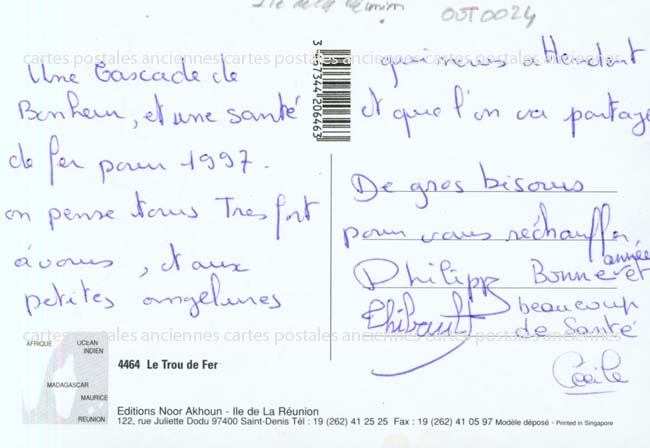 Ile de la Réunion
OST0024
Une Cascade de
Bonheur, et une santé
de fer pour 1997.
on pense tous Très fort
à vous, et aux
petites angelures
qui nous attendent
et que l'on va partage
De gros bisous
pour vous réchauffer
Philippe
Thibault
Bonne
année et
beaucoup
de Santé
Cécile
cartes postales anciennes cartes postales anciennes cartes postales anciennes
cartes postales anciennes cartes postales anciennes cartes postales anciennes
3 437344 206463
AFRIQUE
OCEAN
INDIEN
MADAGASCAR
MAURICE
REUNION
4464 Le Trou de Fer
Editions Noor Akhoun - Ile de La Réunion
122, rue Juliette Dodu 97400 Saint-Denis Tél : 19 (262) 41 25 25 Fax : 19 (262) 41 05 97 Modèle déposé - Printed in Singapore